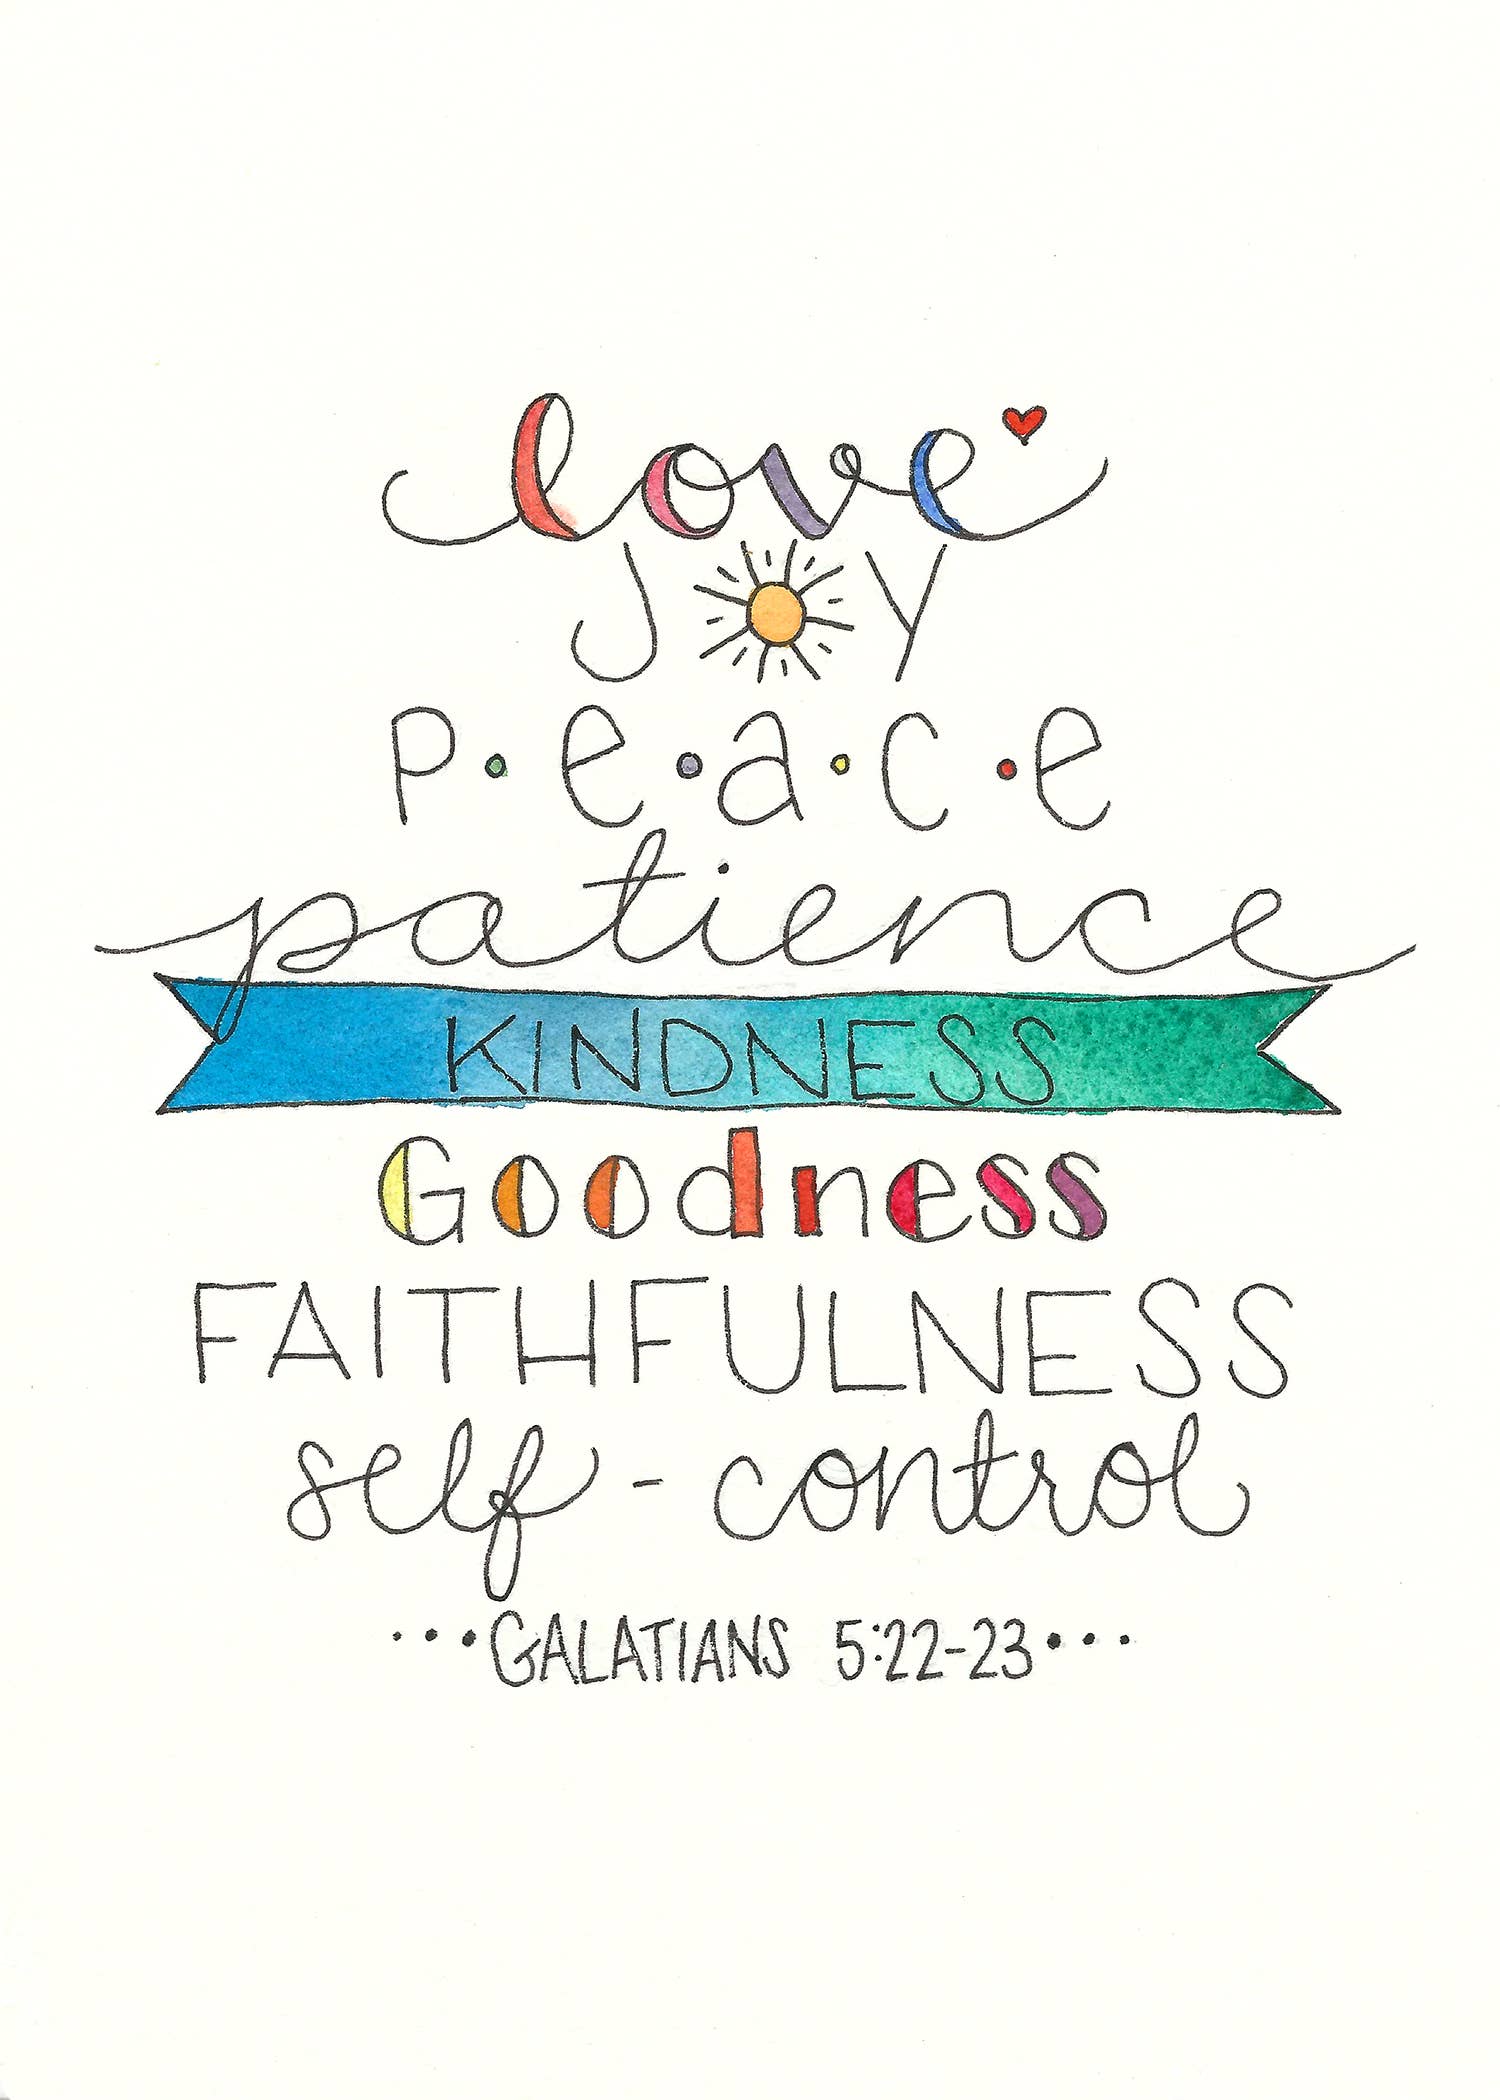 love
JOY
p•e•a•c•e
patience
KINDNESS
Goodness
FAITHFULNESS
self-control
•••GALATIANS 5:22-23•••